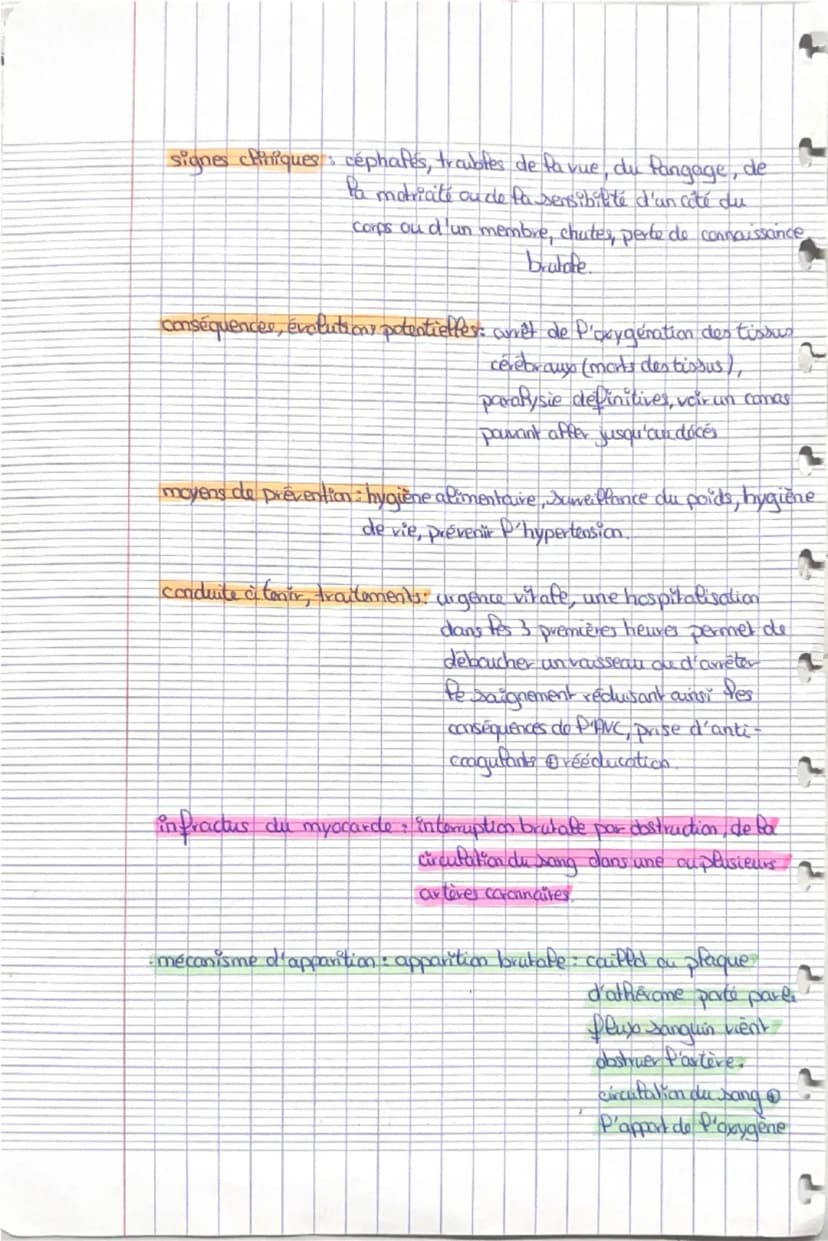 signes cliniques : céphalés, troubles de la vue, du langage, de
la motricité ou de la sensibilité d'un côté du
corps ou d'un membre, chutes, perte de connaissance
brutale.
conséquences, évolutions potentielles : arrêt de l'oxygénation des tissus
cérébraux (morts des tissus),
paralysie définitives, voir un comas
pouvant aller jusqu'au décés
moyens de prévention : hygiène alimentaire, surveillance du poids, hygiène
de vie, prévenir l'hypertension.
conduite à tenir, traitements : urgence vitale, une hospitalisation
dans les 3 premières heures permet de
déboucher un vaisseau ou d'arrêter
le saignement réduisant ainsi les
conséquences de l'AVC, prise d'anti-
coagulants ⊕ rééducation.
infractus du myocarde : interruption brutale par obstruction, de la
circulation du sang dans une ou plusieurs
artères coronnaires.
mécanisme d'apparition : apparition brutale : caillot ou plaque
d'athérome porté par le
flux sanguin vient
obstruer l'artère.
circulation du sang ⊕
l'apport de l'oxygène